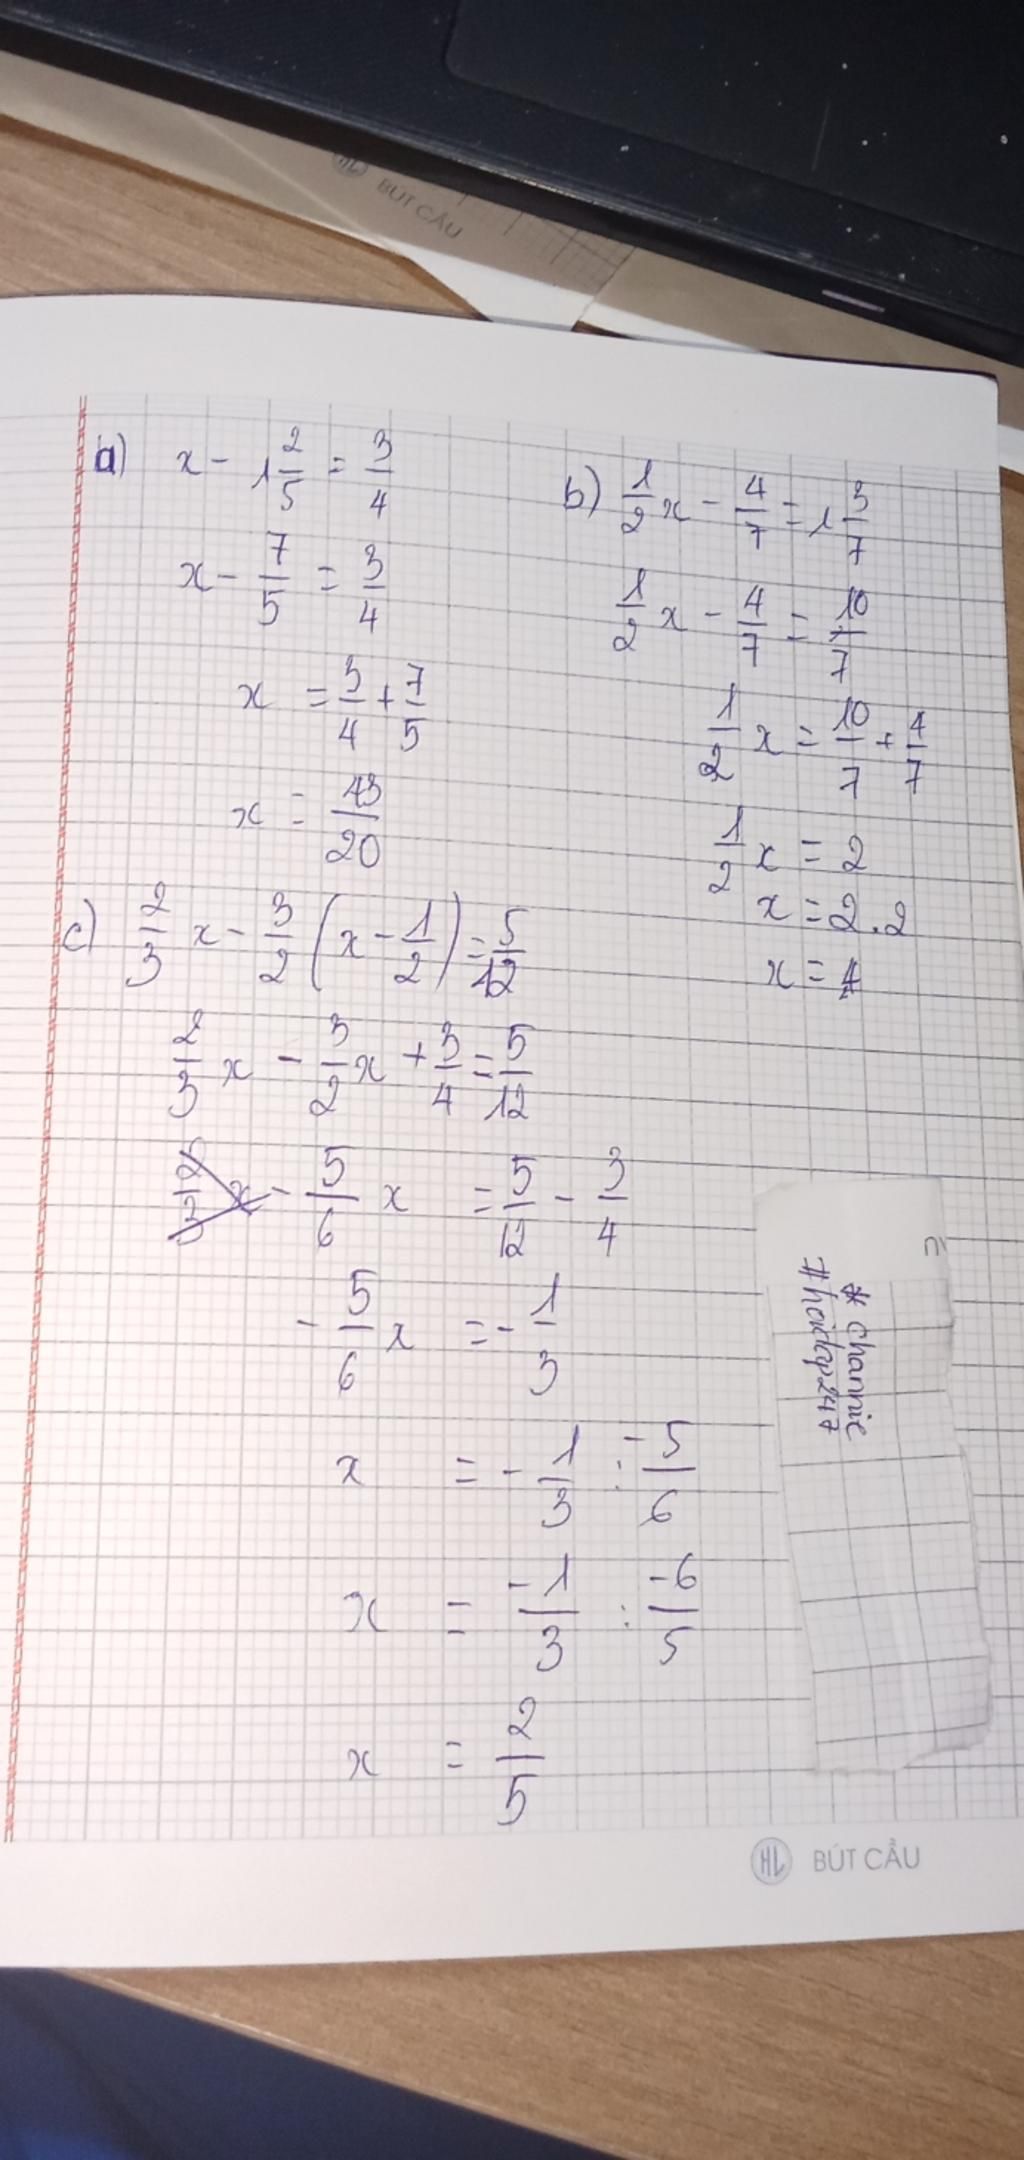 BÚT CẦU
a) x - 1 2/5 = 3/4
x - 7/5 = 3/4
x = 3/4 + 7/5
x = 43/20
b) 1/2 x - 4/7 = 1 3/7
1/2 x - 4/7 = 10/7
1/2 x = 10/7 + 4/7
1/2 x = 2
x = 2.2
x = 4
c) 2/3 x - 3/2 (x - 1/2) = 5/12
2/3 x - 3/2 x + 3/4 = 5/12
- 5/6 x = 5/12 - 3/4
- 5/6 x = - 1/3
x = - 1/3 : -5/6
x = -1/3 : -6/5
x = 2/5
* channie
#hoidap247
HL BÚT CẦU